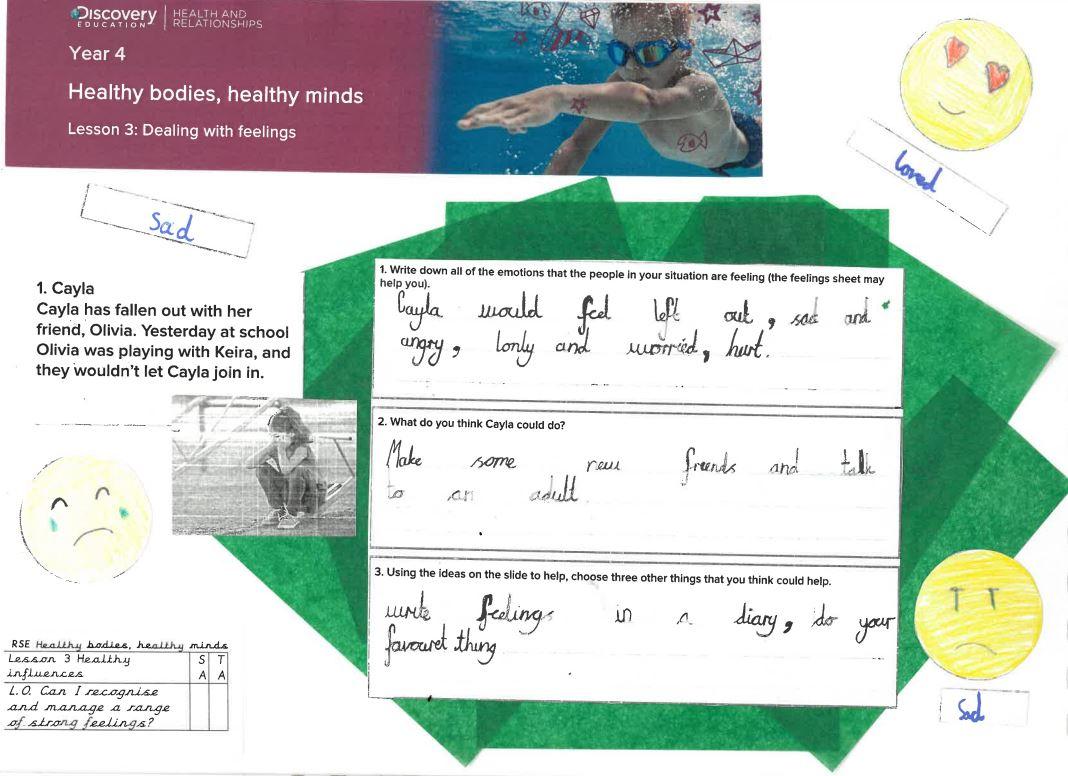 Discovery
EDUCATION
HEALTH AND
RELATIONSHIPS
Year 4
Healthy bodies, healthy minds
Lesson 3: Dealing with feelings
loved
Sad
1. Cayla
Cayla has fallen out with her
friend, Olivia. Yesterday at school
Olivia was playing with Keira, and
they wouldn't let Cayla join in.
1. Write down all of the emotions that the people in your situation are feeling (the feelings sheet may
help you).
Cayla would feel left out, sad and
angry, lonly and worried, hurt.
2. What do you think Cayla could do?
Make some new friends and talk
to an adult
3. Using the ideas on the slide to help, choose three other things that you think could help.
write feelings in a diary, do your
favouret thing
Sad
RSE Healthy bodies, healthy minds
Lesson 3 Healthy
influences
S T
A A
L.O. Can I recognise
and manage a range
of strong feelings?